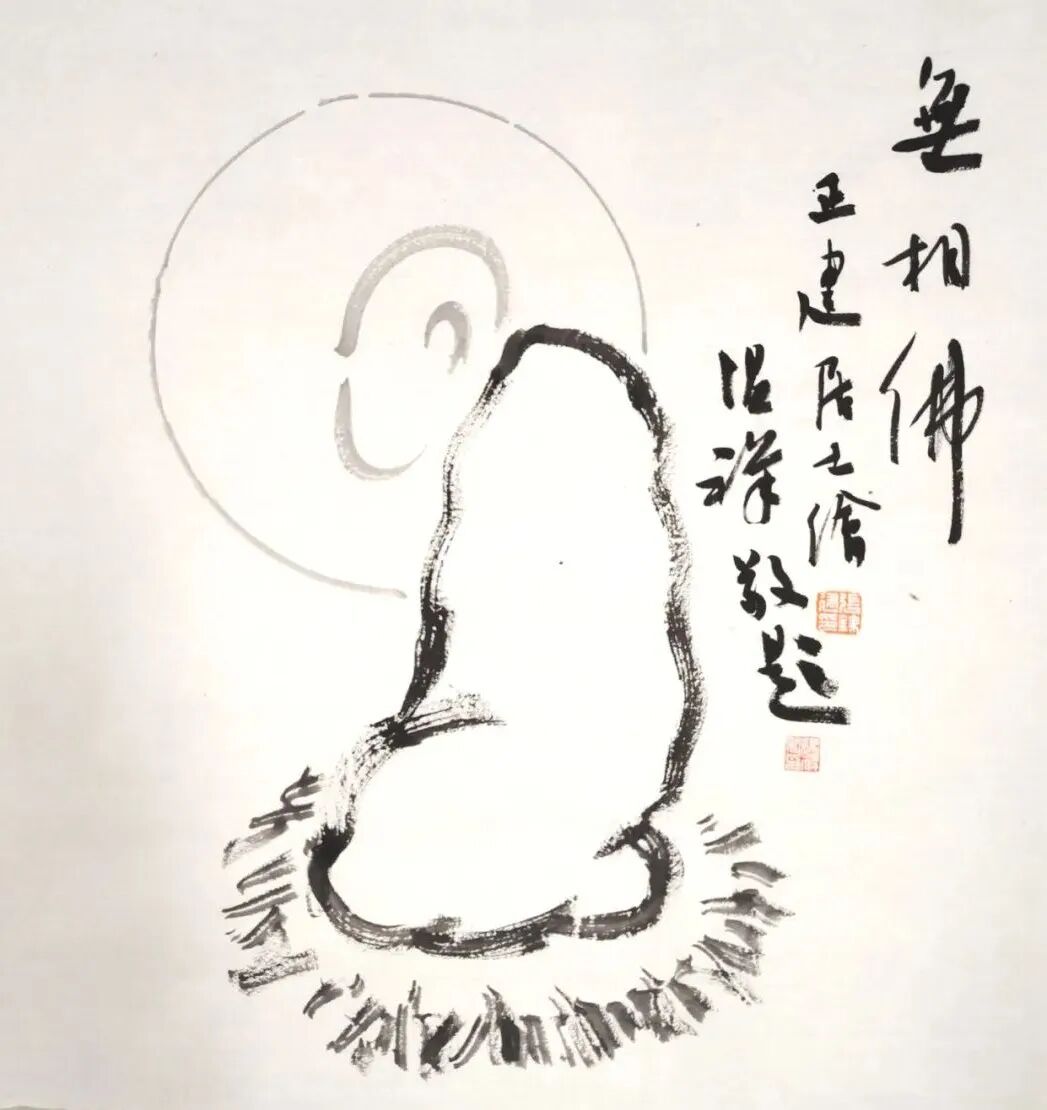 無相佛
正建居士繪
温祥敬題